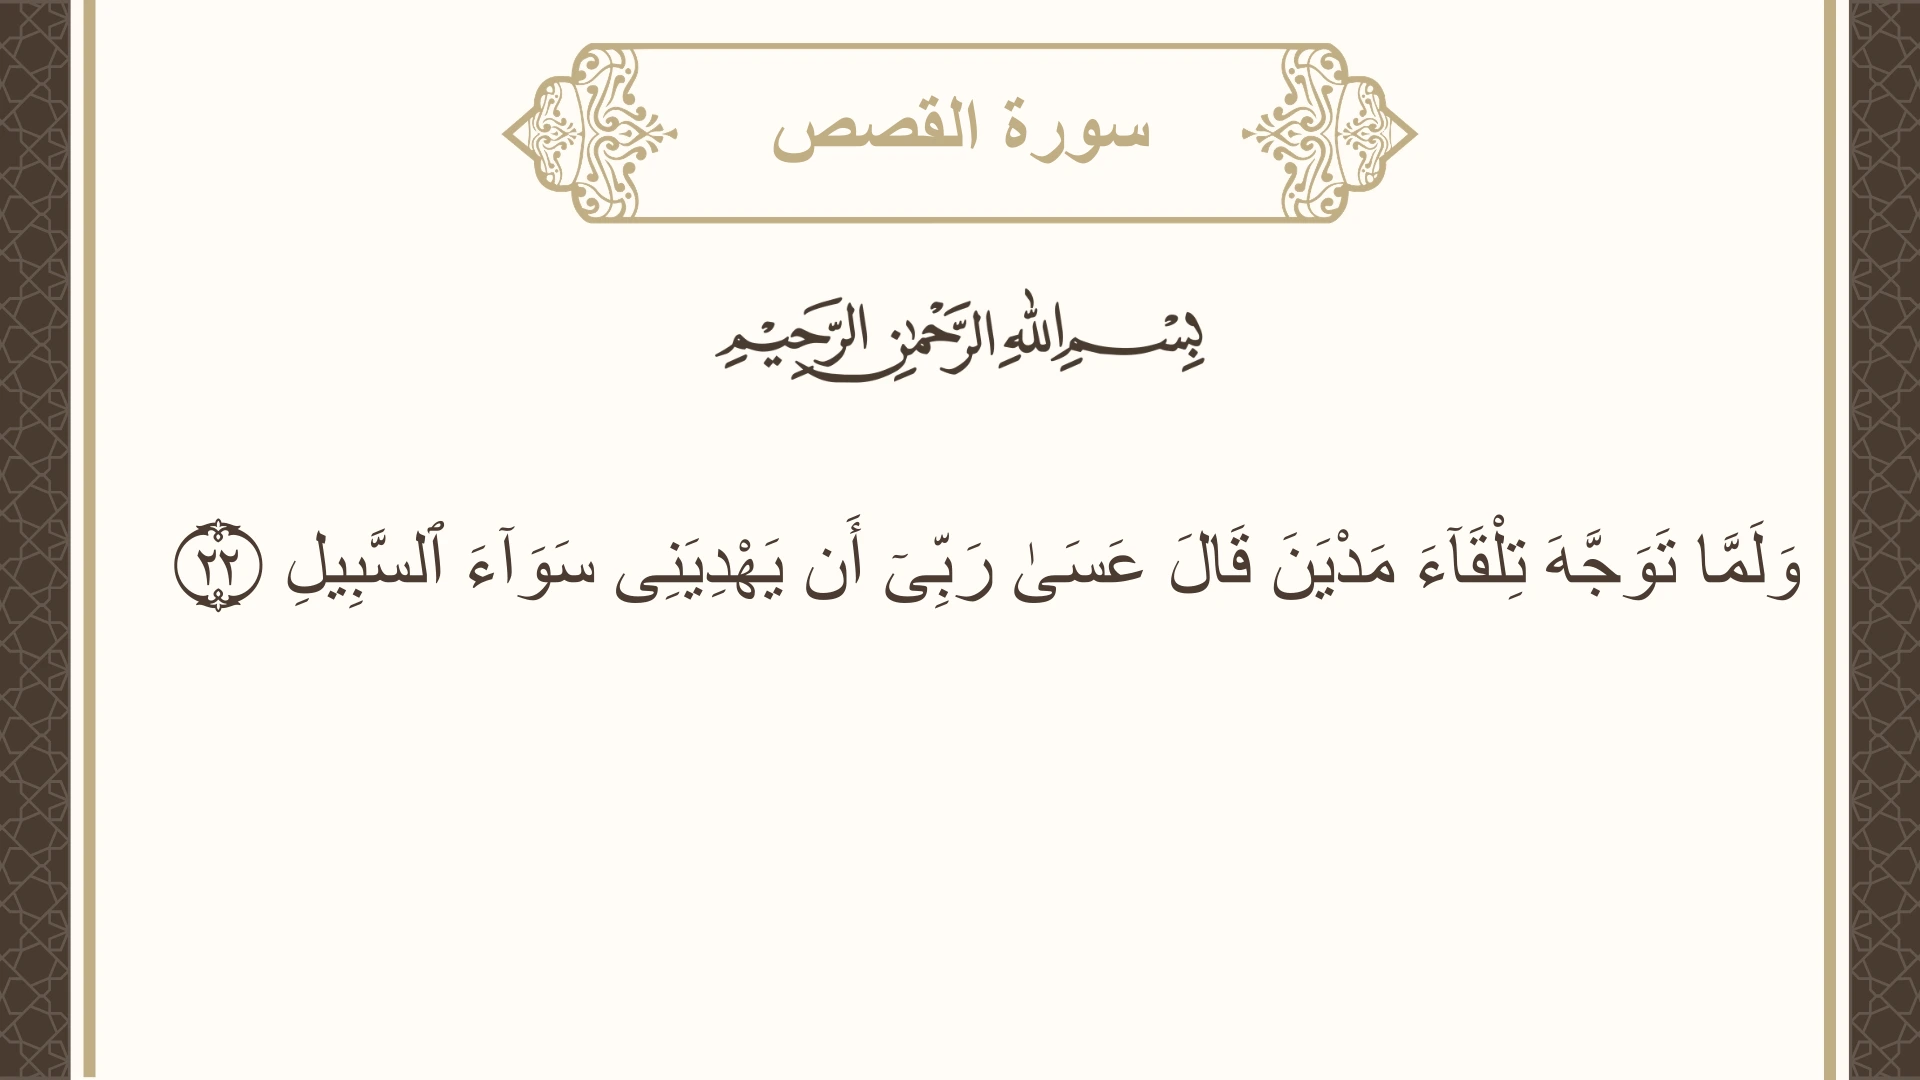 سورة القصص
بِسْمِ اللهِ الرَّحْمٰنِ الرَّحِيْمِ
وَلَمَّا تَوَجَّهَ تِلْقَآءَ مَدْيَنَ قَالَ عَسَىٰ رَبِّىٓ أَن يَهْدِيَنِى سَوَآءَ ٱلسَّبِيلِ ٢٢